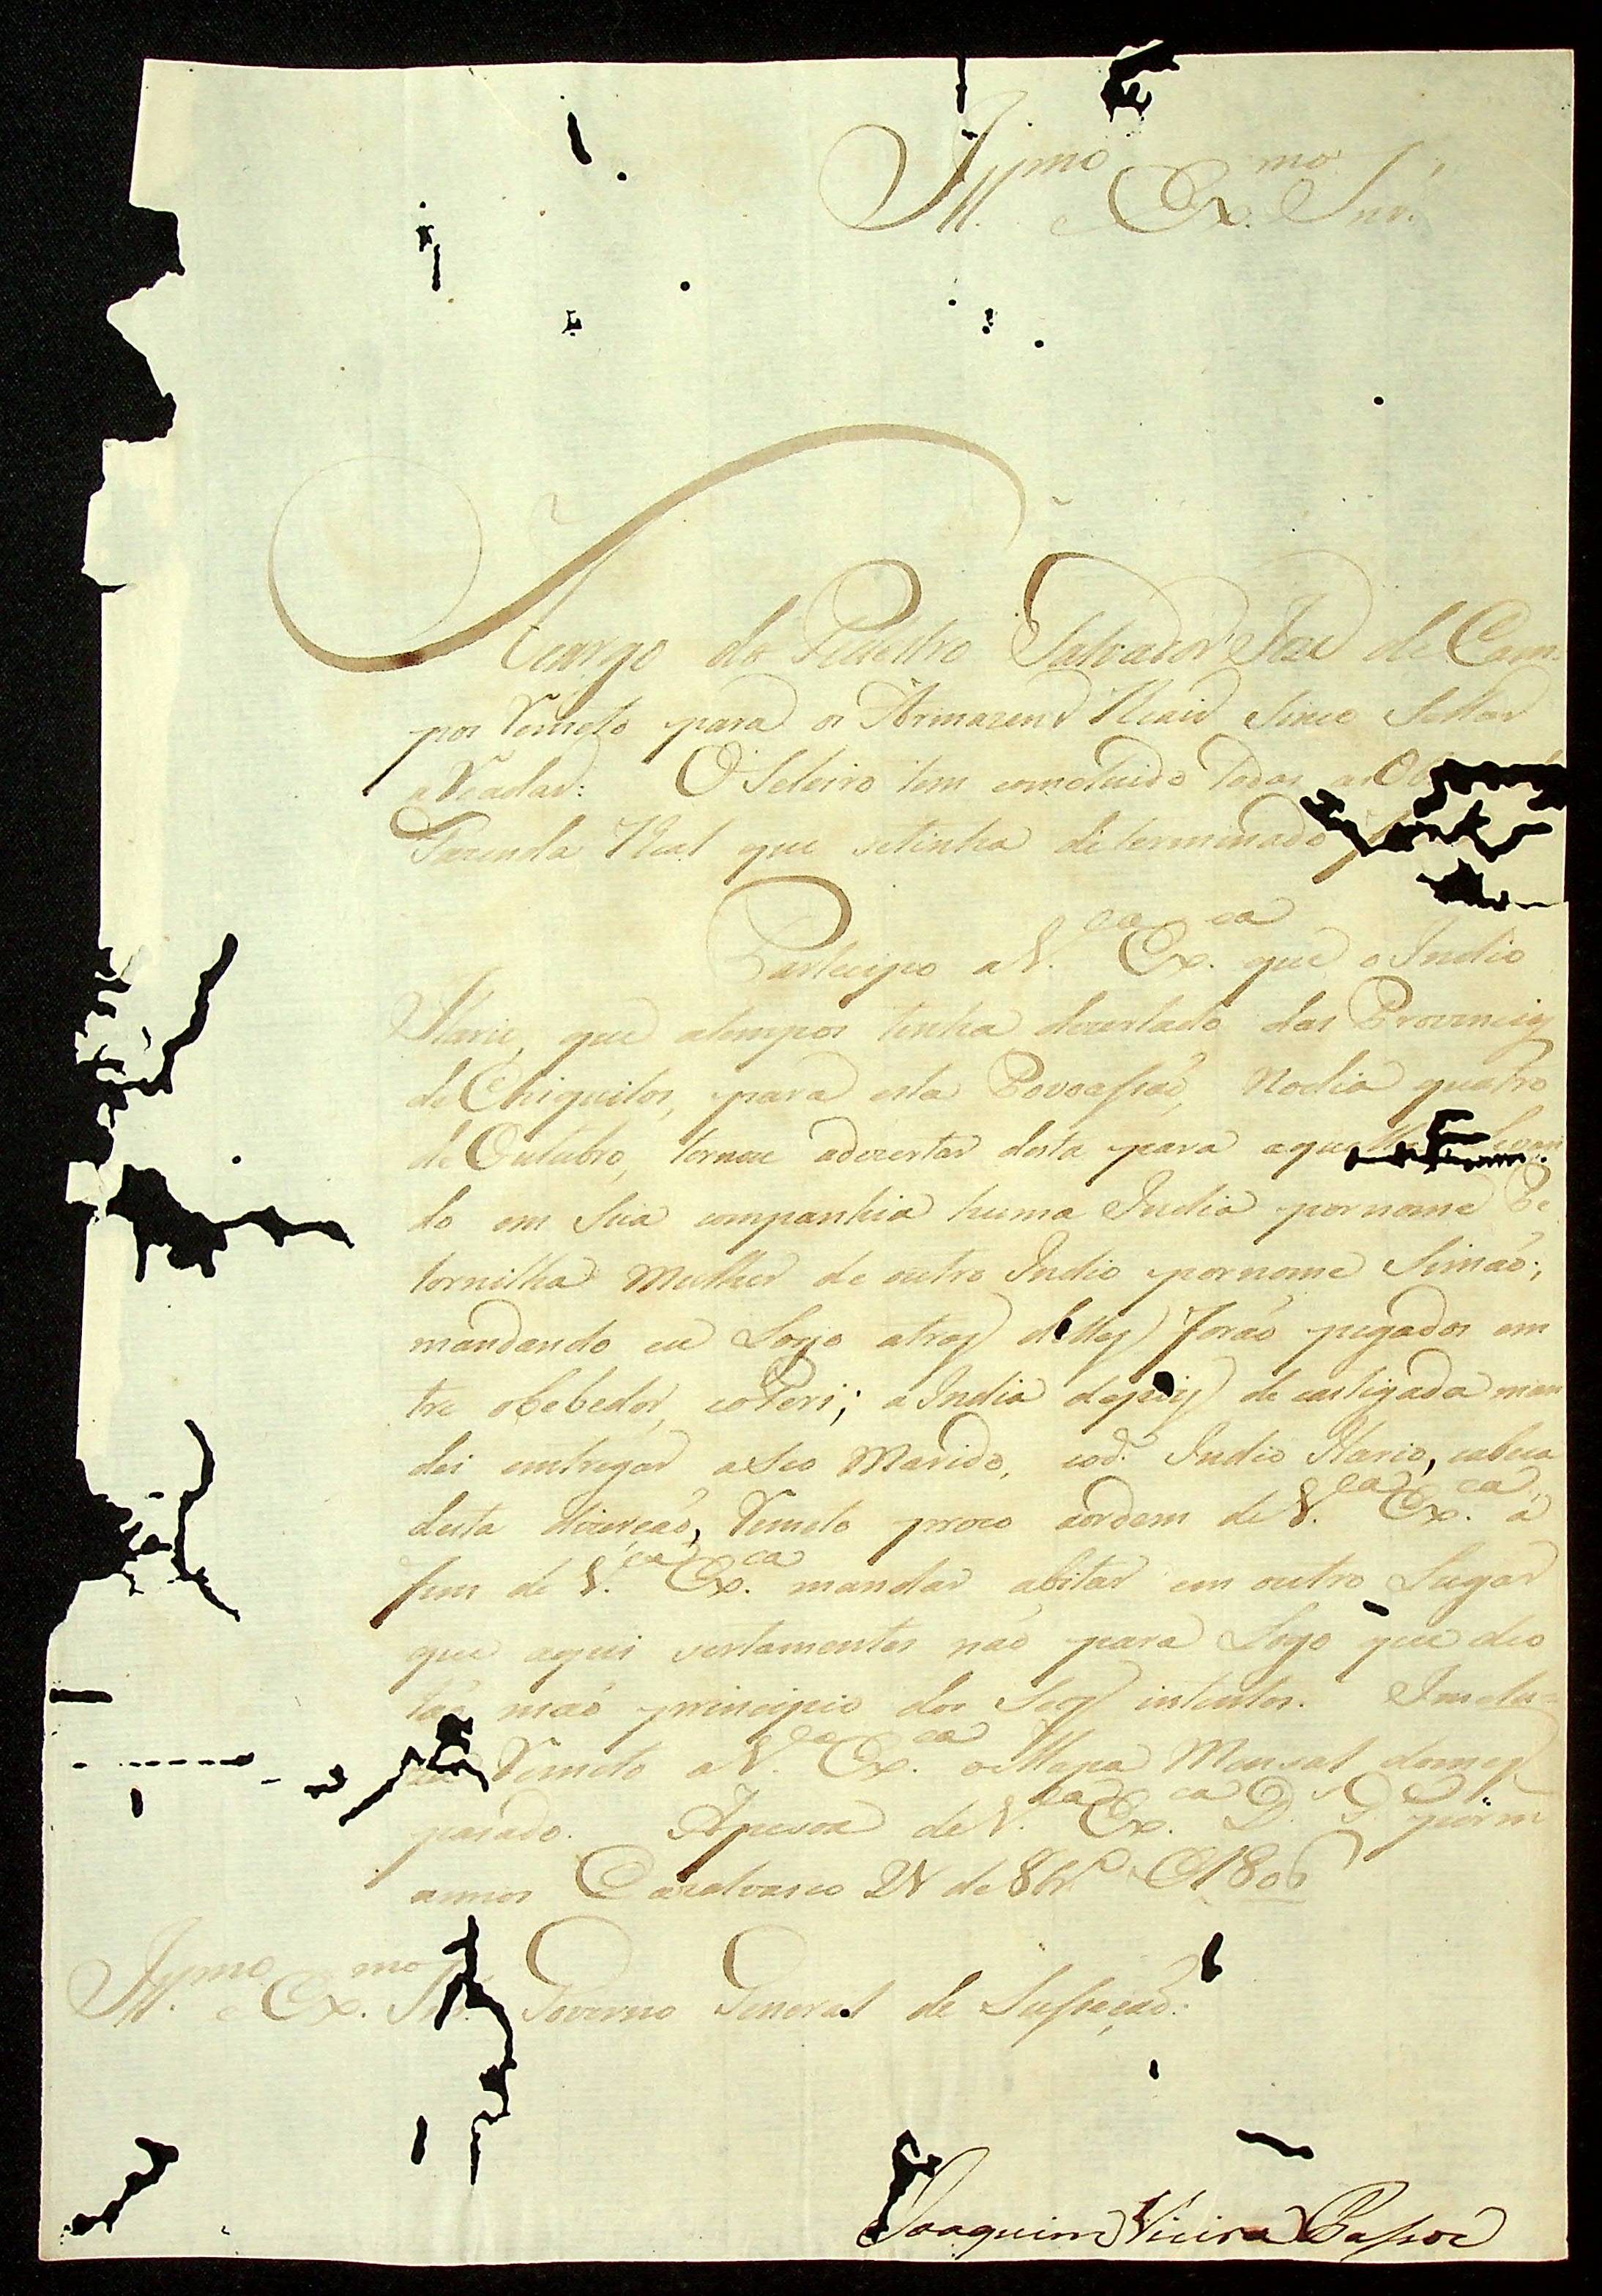 Ill.mo e Ex.mo Snr.
Acargo do Pedestre Salvador Joze de Cam-
pos Remeto para os Armazens Reais Sinco Sellas
aVeadas: O Seleiro tem comcluido todas as Ob
Fazenda Real que setinha determinado
Partecipo a V.ca Ex.ca que o Indio
Ilario, que atempos tinha dezertado das Provincias
de Chiquitos, para esta Povoassaõ, Nodia quatro
de Outubro, tornou adezertar desta para aque levan
do em Sua companhia huma India pornome Pe
tornilha Mulher de outro Indio pornome Simaõ;
mandando eu Logo atras delles foraõ pegados em
tre oBebedor, eoPeri; a India depois de castigada man
dei emtregar aSeo Marido, eod.o Indio Ilario, cabeca
desta dizerçaõ, Remeto prezo aordem de V.ca Ex.ca a
fim de V.ca Ex.ca mandar abitar em outro Lugar
que aqui sertamentes naõ para Logo que deo
taõ máo principio dos Seos intentos. Imclu-
zo Remeto a V.ca Ex.ca o Mapa Mensal domes
pasado. Apesoa de V.ca Ex.ca D.s G.e por m
annos Cazalvasco 24 de 8br.o de 1806
Ill.mo e Ex.mo Snr. Governo General de Susseçaõ.
Joaquim Vieira Passos